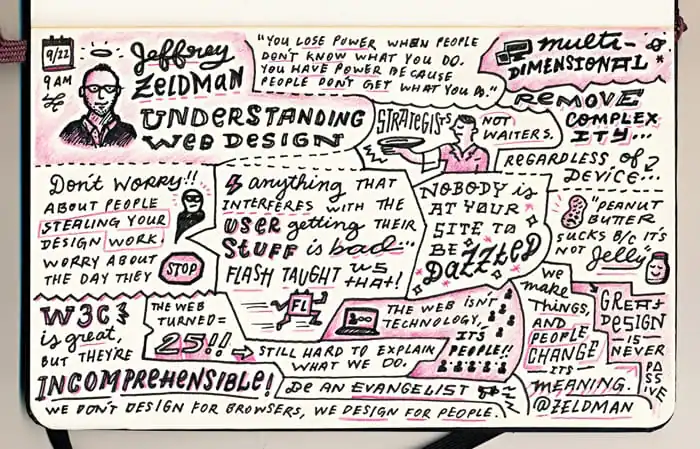 9/22
9 AM
Jeffrey
ZELDMAN
UNDERSTANDING
WEB DESIGN
"YOU LOSE POWER WHEN PEOPLE
DON'T KNOW WHAT YOU DO.
YOU HAVE POWER BECAUSE
PEOPLE DON'T GET WHAT YOU DO."
multi-
DIMENSIONAL
REMOVE
COMPLEX
ITY...
REGARDLESS of
DEVICE...
STRATEGISTS
NOT
WAITERS.
Don't WORRY!!
ABOUT PEOPLE
STEALING YOUR
DESIGN WORK.
WORRY ABOUT
THE DAY THEY
STOP
anything THAT
INTERFERES WITH THE
USER getting THEIR
STUFF is bad
FLASH TAUGHT US
THAT!
FL
NOBODY is
AT YOUR
SITE TO
BE
DAZZLED
"PEANUT
BUTTER
SUCKS B/C IT'S
NOT Jelly"
W3C
is great,
BUT THEY'RE
INCOMPREHENSIBLE!
THE WEB
TURNED=
25!!
STILL HARD TO EXPLAIN
WHAT WE DO.
THE WEB ISN'T
TECHNOLOGY,
IT'S
PEOPLE!!
BE AN EVANGELIST
WE DON'T DESIGN FOR BROWSERS, WE DESIGN FOR PEOPLE.
we
make
THINGS,
AND
PEOPLE
CHANGE
ITS
MEANING.
@ZELDMAN
GREAT
DESIGN
IS
NEVER
PA
SS
IVE